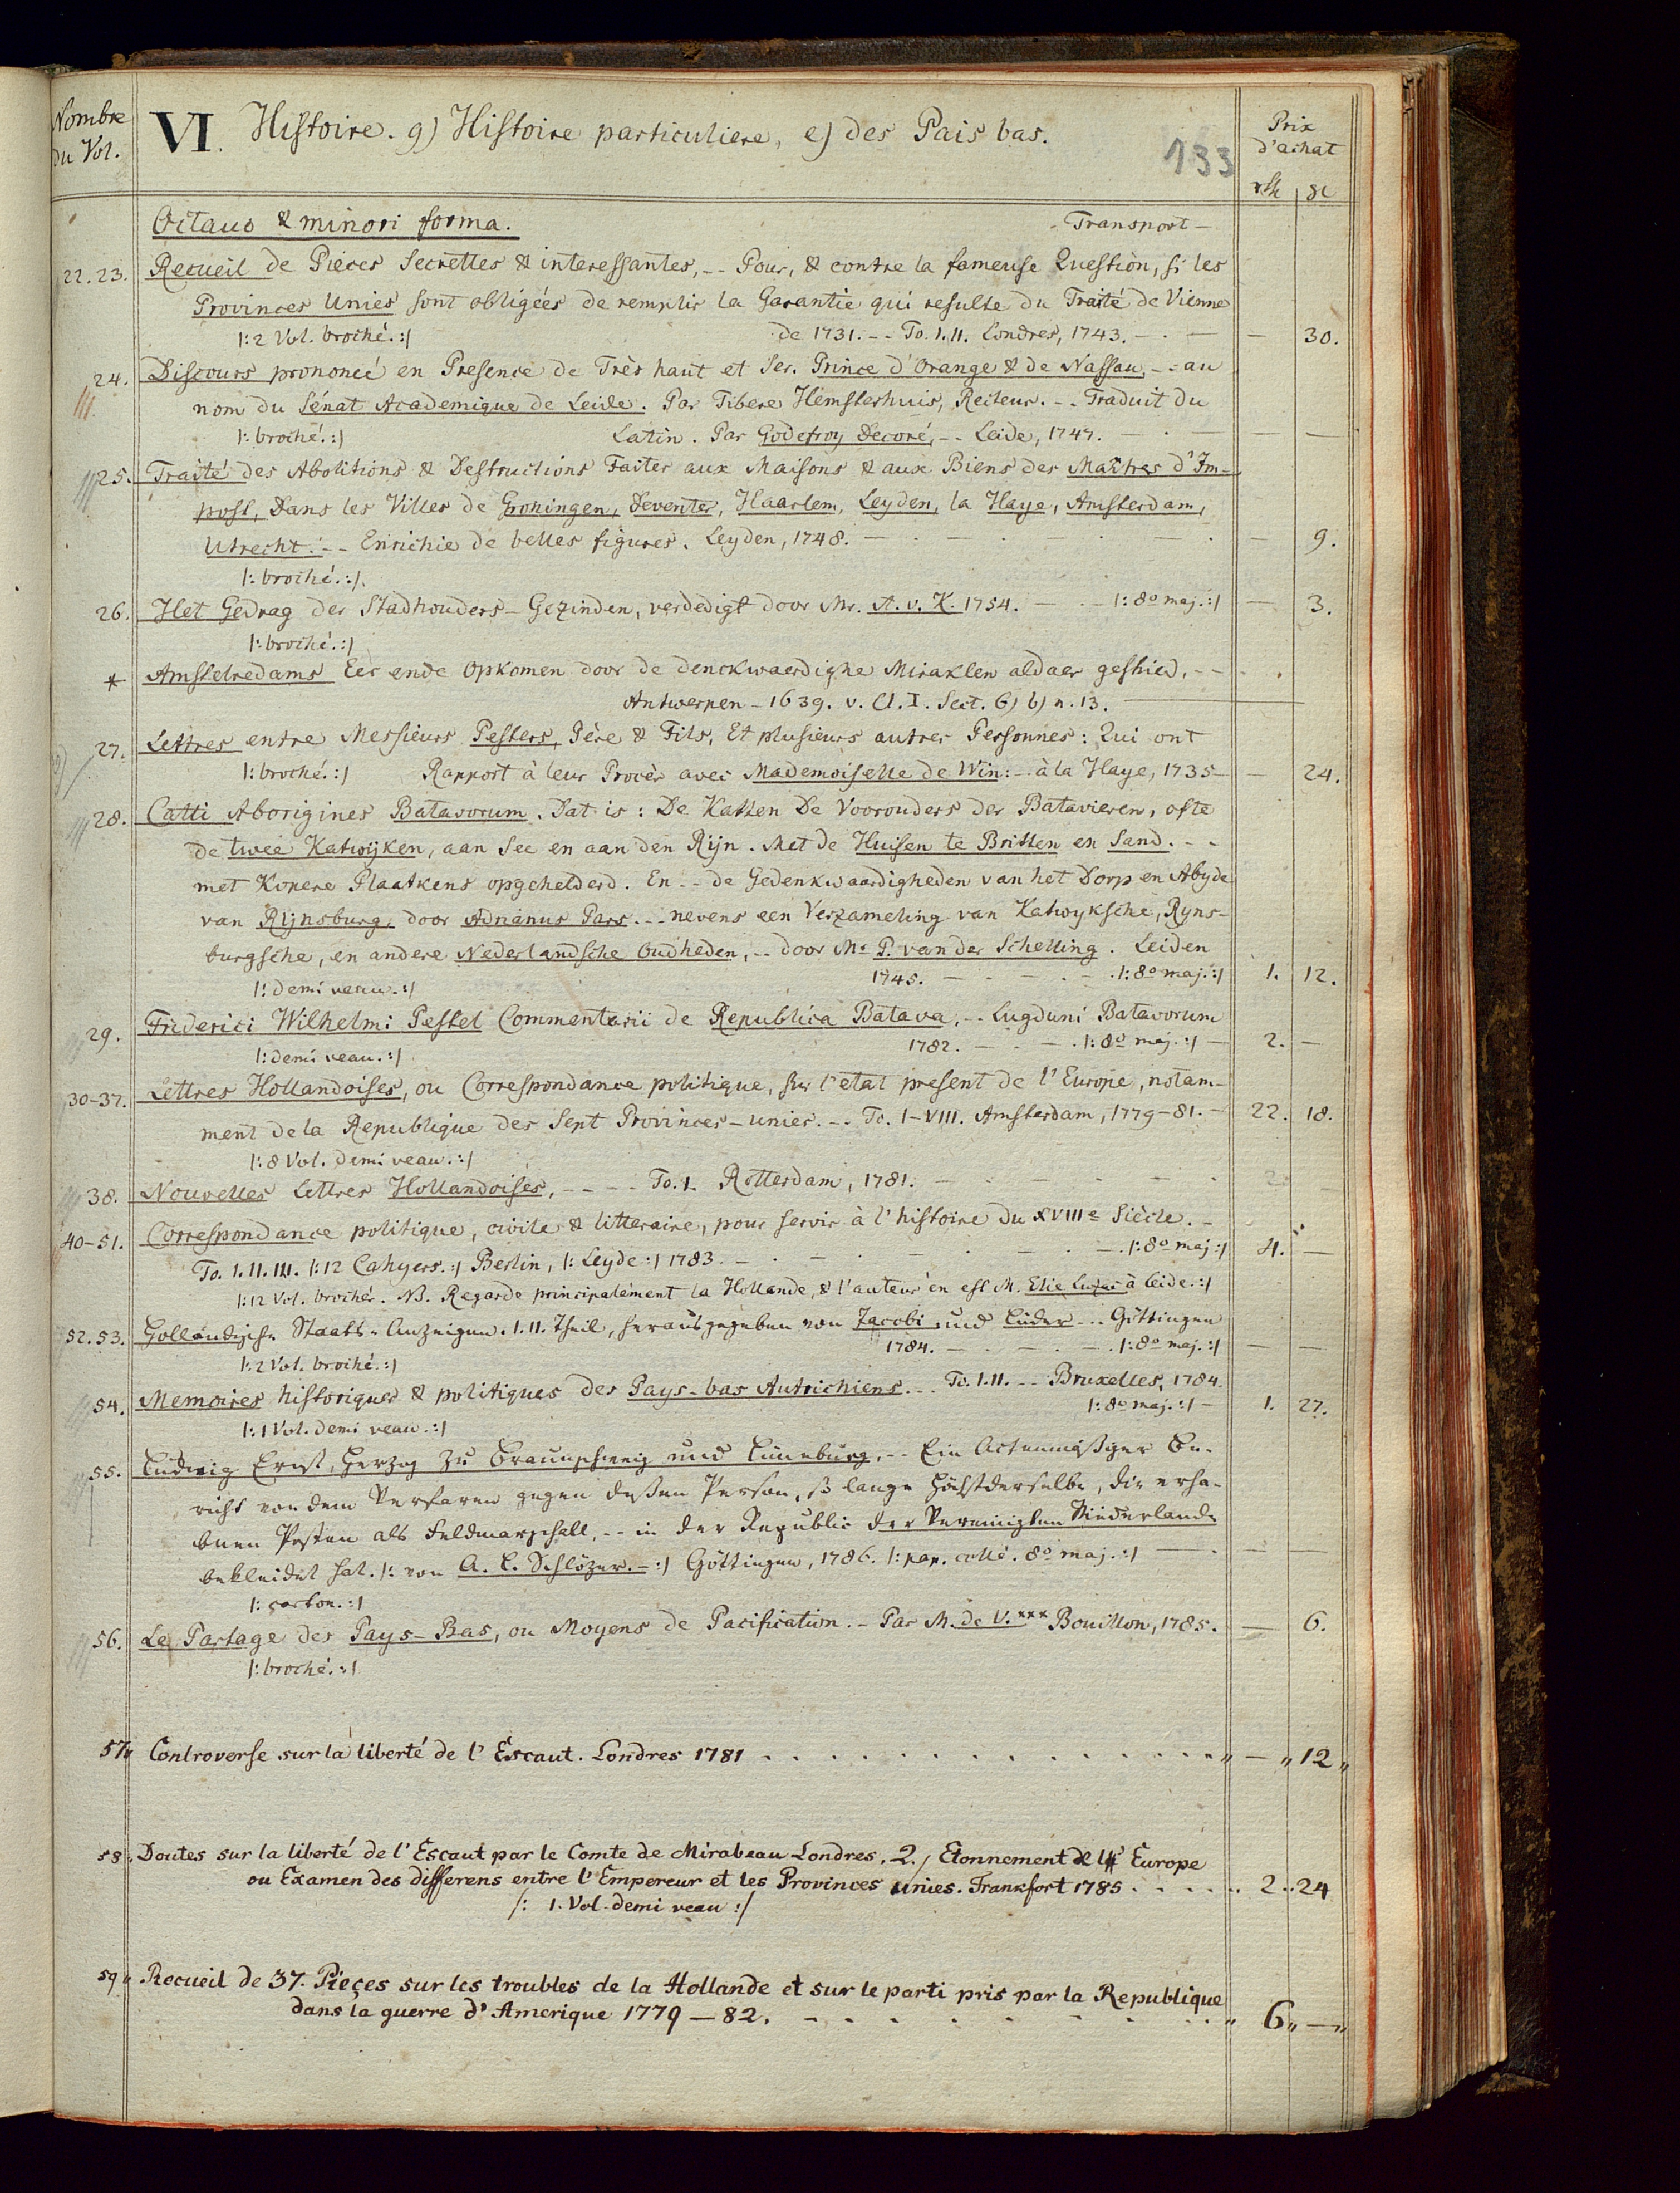 Nombre
du Vol.
VI. Histoire. g) Histoire particuliere, e) des Pais bas.
133
Prix
d'achat
rth ßl
Octavo & minori forma. Transport -
22.23. Recueil de Pieces Secrettes & interessantes, -- Pour, & contre la fameuse Question, si les
Provinces Unies sont obligées de remplir la Garantie qui resulte du Traité de Vienne
|: 2 Vol. broché. :| de 1731. -- To. I. II. Londres, 1743. — . — — 30.
24. Discours prononcé en Presence de Très haut et Ser. Prince d'Orange & de Nassau, -- au
nom du Sénat Academique de Leide. Par Tibere Hemsterhuis, Recteur. -- Traduit du
|: broché. :| Latin. Par Godefroy Decoré, -- Leide, 1747. — . — — —
25. Traité des Abolitions & Destructions Faites aux Maisons & aux Biens des Maîtres d'Im-
post, Dans les Villes de Groningen, Deventer, Haarlem, Leyden, la Haye, Amsterdam,
Utrecht. -- Enrichie de belles figures. Leyden, 1748. — . — . — . — 9.
|: broché. :|
26. Het Gedrag der Stadhouders-Gezinden, verdedigt door Mr. A. v. K. 1754. — . — |: 8o maj. :| — 3.
|: broché. :|
* Amstelredams Eer ende Opkomen door de denckwaerdighe Miraklen aldaer geshied, --
Antwerpen - 1639. v. Cl. I. Sect. 6) b) n. 13. —
27. Lettres entre Messieurs Pesters, Père & Fils, Et plusieurs autres Personnes: Qui ont
|: broché. :| Rapport à leur Procès avec Mademoiselle de Win: - à la Haye, 1735 — — 24.
28. Catti Aborigines Batavorum. Dat is: De Katten De Voorouders der Batavieren, ofte
de twee Katwijken, aan See en aan den Rijn. Met de Huisen te Britten en Sand. --
met Kopere Plaatkens opgehelderd. En -- de Gedenkwaardigheden van het Dorp en Abyde
van Rijnsburg, door Adrianus Pars. -- nevens een Verzameling van Katwyksche, Ryns-
burgsche, en andere Nederlandsche Oudheden, -- door Mr P. van der Schelling. Leiden
1745. — . — . — |: 8o maj. :| 1. 12.
|: demi veau. :|
29. Friderici Wilhelmi Pestel Commentarii de Republica Batava. -- Lugduni Batavorum
|: demi veau. :| 1782. — . — . |: 8o maj. :| — 2. —
30-37. Lettres Hollandoises, ou Correspondance politique, sur l'etat present de l'Europe, notam-
ment de la Republique des Sept Provinces-unies. -- To. I-VIII. Amsterdam, 1779-81. - 22. 18.
|: 8 Vol. demi veau. :|
38. Nouvelles Lettres Hollandoises, ---- To. 1. Rotterdam, 1781. — . — . — . — .
40-51. Correspondance politique, civile & litteraire, pour servir à l'histoire du XVIIIe Siècle. -
To. I. II. III. |: 12 Cahyers. :| Berlin, |: Leyde :| 1783. — . — . — . — |: 8o maj :| 4. —
|: 12 Vol. brochés. N. Regarde principalement la Hollande, & l'auteur en est M. Elie Luzac à Leide. :|
52.53. Holländische Staats-Anzeigen. I. II. Theil, herausgegeben von Jacobi und Lüder -- Göttingen
1784. — . — . — . |: 8o maj. :| — —
|: 2 Vol. broché. :|
54. Memoires historiques & politiques des Pays-bas Autrichiens. -- To. I. II. -- Bruxelles, 1784.
|: 8o maj. :| — 1. 27.
|: 1 Vol. demi veau. :|
55. Ludwig Ernst, Herzog zu Braunschweig und Lüneburg, -- Ein Actenmäßiger Be-
richt von dem Verfaren gegen deßen Person, so lange Höchstderselbe, die erha-
bnen Posten als Feldmarschall, -- in der Republic der Vereinigten Niederlande
bekleidet hat. |: von A. L. Schlözer. - :| Göttingen, 1786. |: pap. collé. 8o maj. :| — . — —
|: carton. :|
56. Le Partage des Pays-Bas, ou Moyens de Pacification. - Par M. de V.*** Bouillon, 1785. — 6.
|: broché. :|
57. Controverse sur la liberté de l'Escaut. Londres 1781 . . . . . . . . . . . . „ — „ 12 „
58. Doutes sur la liberté de l'Escaut par le Comte de Mirabeau Londres. 2./ Etonnement de l'Europe
ou Examen des differens entre l'Empereur et les Provinces unies. Frankfort 1785 . . . . . 2 .. 24
|: 1. Vol. demi veau :|
59. Recueil de 37. Pieçes sur les troubles de la Hollande et sur le parti pris par la Republique
dans la guerre d'Amerique 1779 — 82. . . . . . . . . „ 6 „ — „